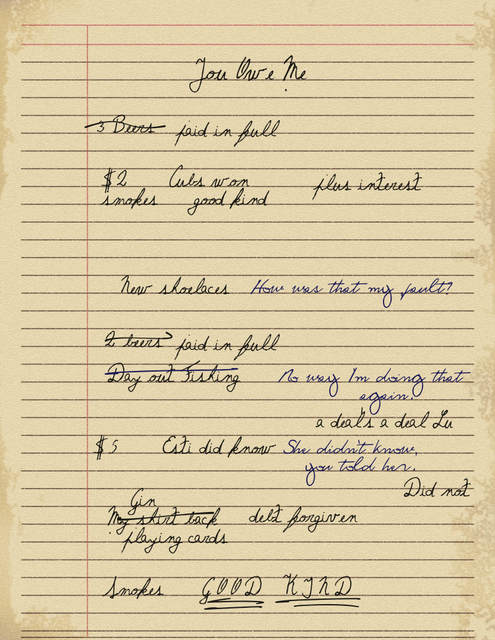 You Owe Me
3 Beers paid in full
$2 Cubs won plus interest
smokes good kind
New shoelaces How was that my fault?
2 beers paid in full
Day out Fishing No way I'm doing that
again.
a deal's a deal Lu
$5 Esti did know She didn't know,
you told her.
Did not
Gin
My shirt back debt forgiven
playing cards
Smokes GOOD KIND